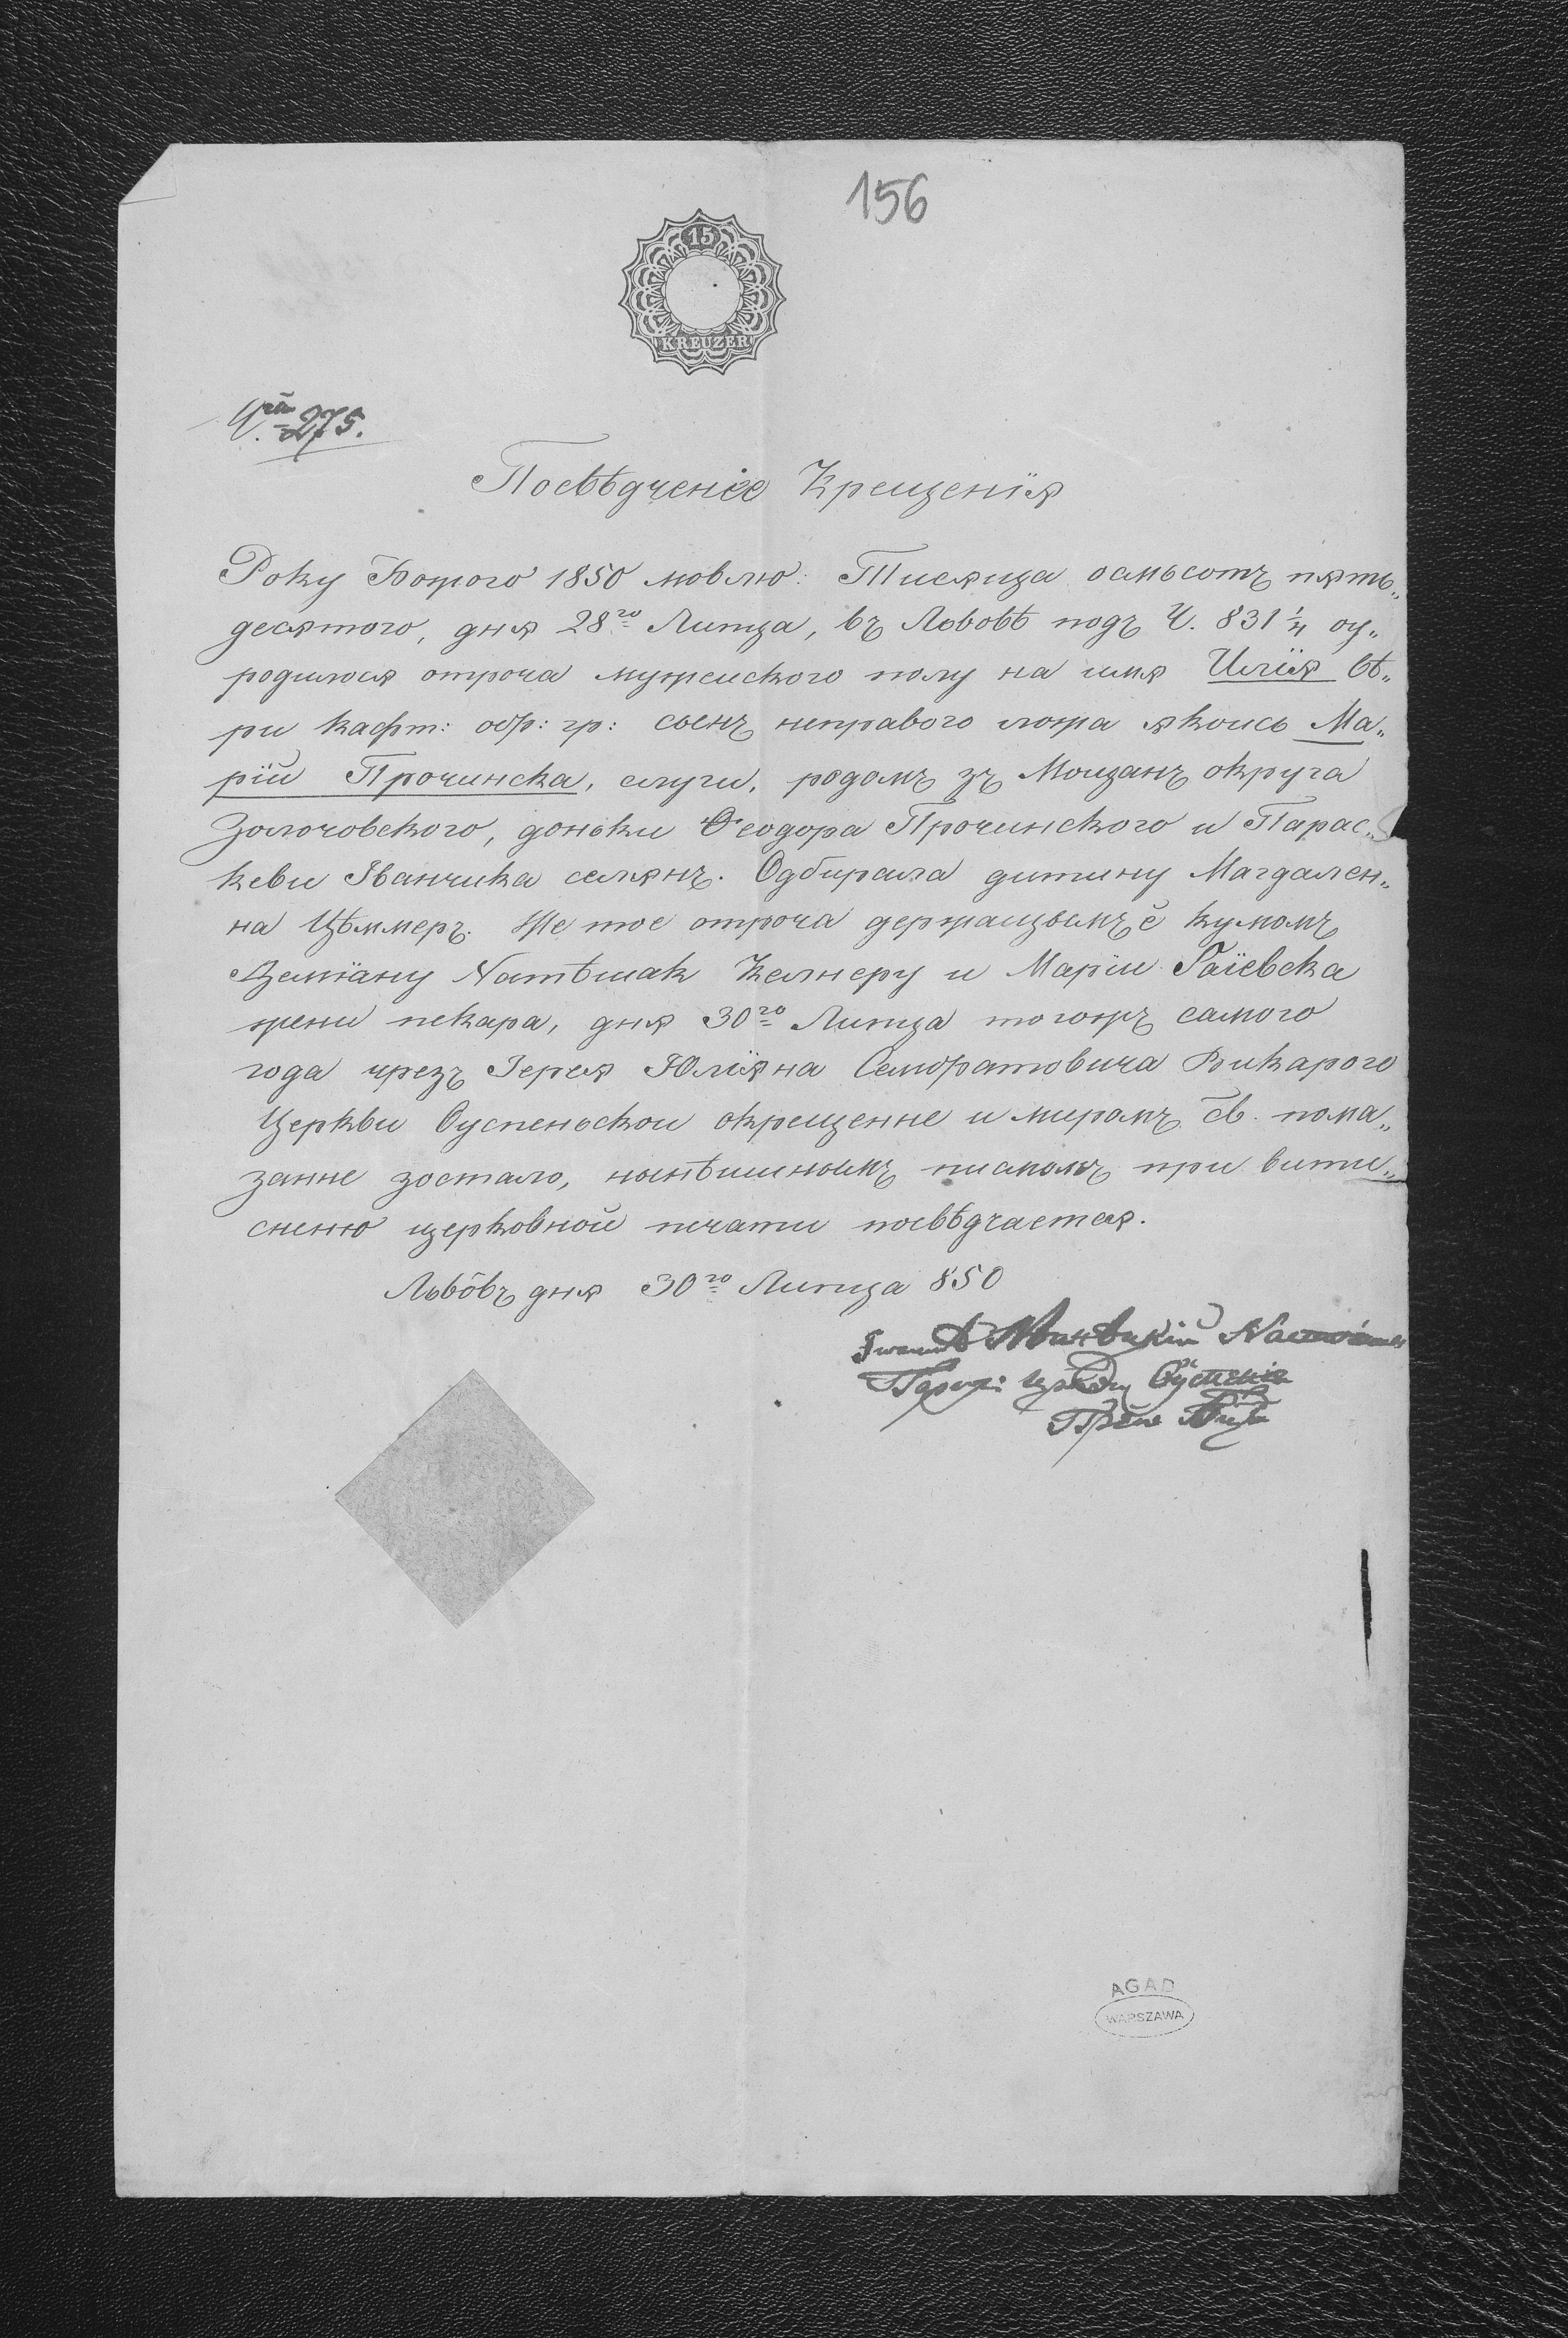 156
15
KREUZER
Ч. 275.
Посвѣдченіе Крещенія
Року Божого 1850 мовлю: Тисяща осмьсотъ пять„
десятого, дня 28го Липца, въ Львовѣ подъ Ч. 831 1/4 оу„
родилося отроча мужеиского полу на имя Илія вѣ„
ри кафт: обр: гр: сынъ неправого ложа якоись Ма„
рїи Прочинска, слуги, родомъ зъ Мощанъ округа
Золочовского, доньки Ѳеодора Прочинского и Парас„
кеви Іванчика селянъ. Одбирала дитину Магдален„
на Цѣммеръ. Же тое отроча держащымъ є кумомъ
Демїану Натѣшак Келнеру и Маріи Гаїевска
жени пекара, дня 30го Липца тогожъ самого
года чрезъ Іерея Юліяна Сембратовича Викарого
Церкви Оуспеньскои окрещенне и миромъ св. пома„
занне зостало, нынѣшнымъ писмомъ при вити„
сненю церковной печати посвѣдчается.
Львôвъ дня 30го Липца 850
AGAD
WARSZAWA